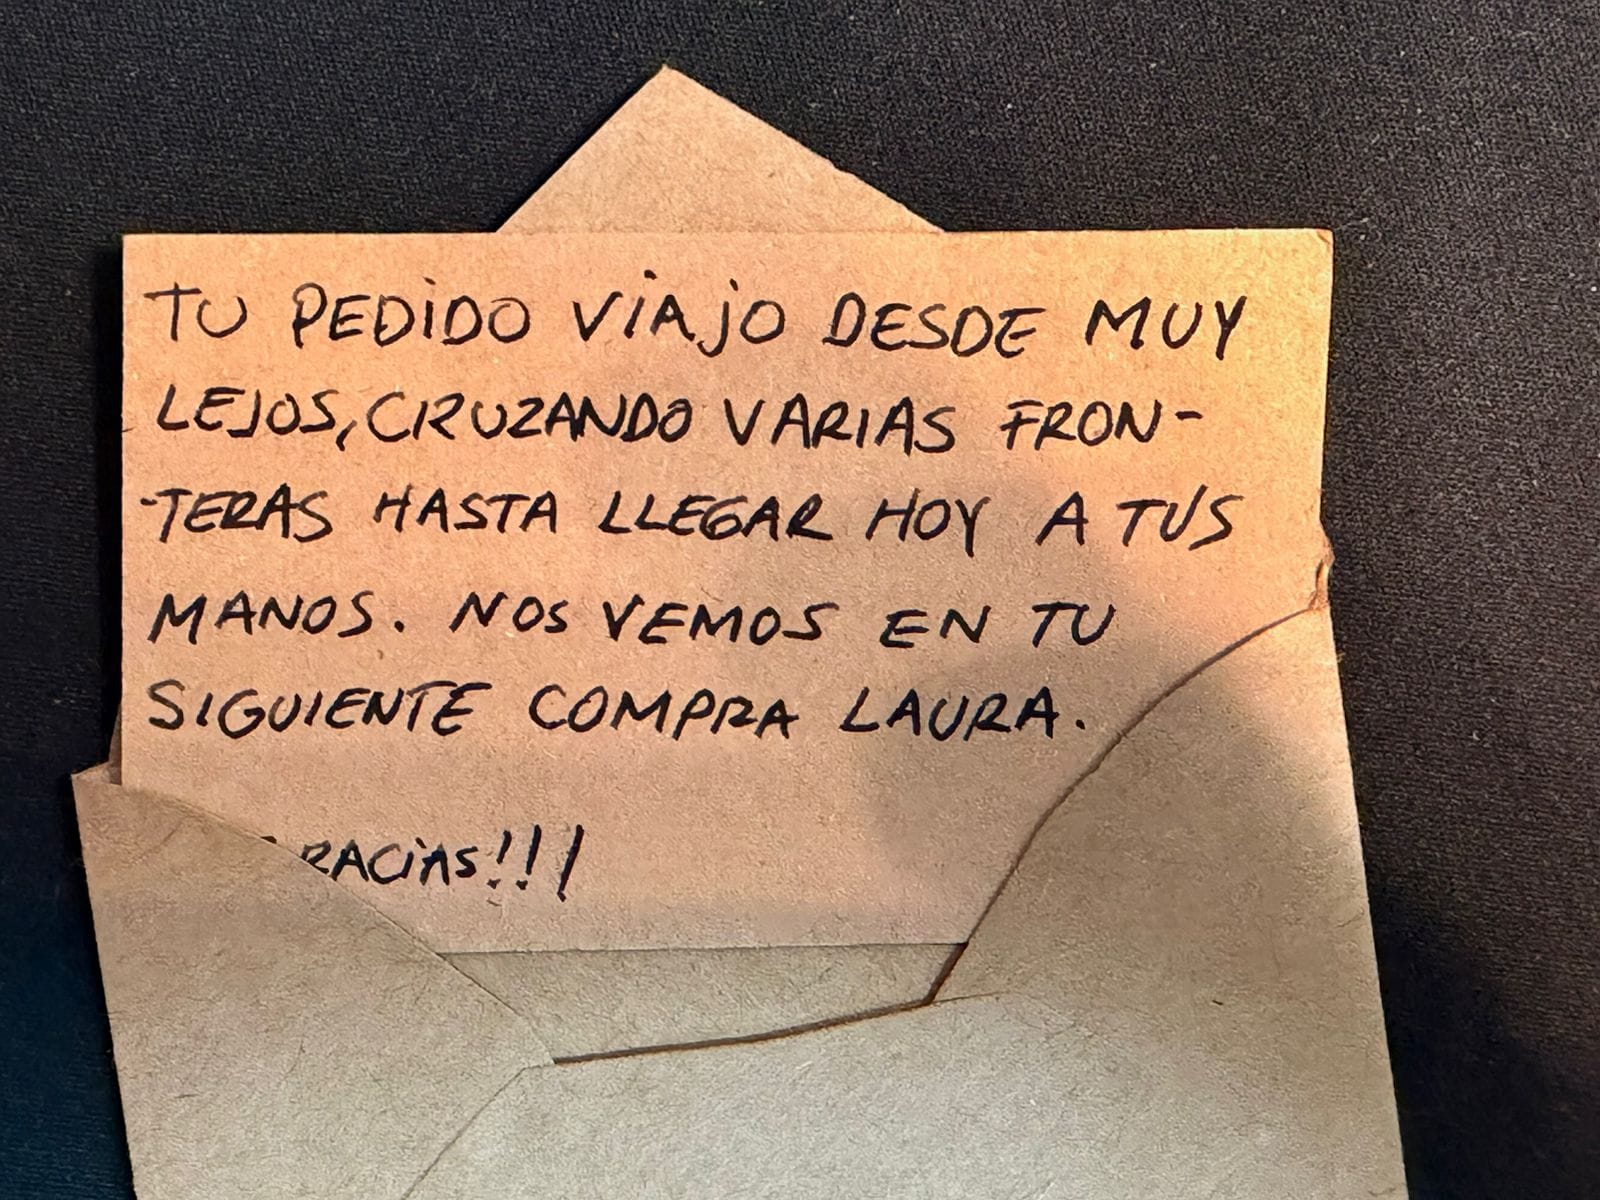 TU PEDIDO VIAJO DESDE MUY
LEJOS, CRUZANDO VARIAS FRON-
-TERAS HASTA LLEGAR HOY A TUS
MANOS. NOS VEMOS EN TU
SIGUIENTE COMPRA LAURA.
GRACIAS!!!